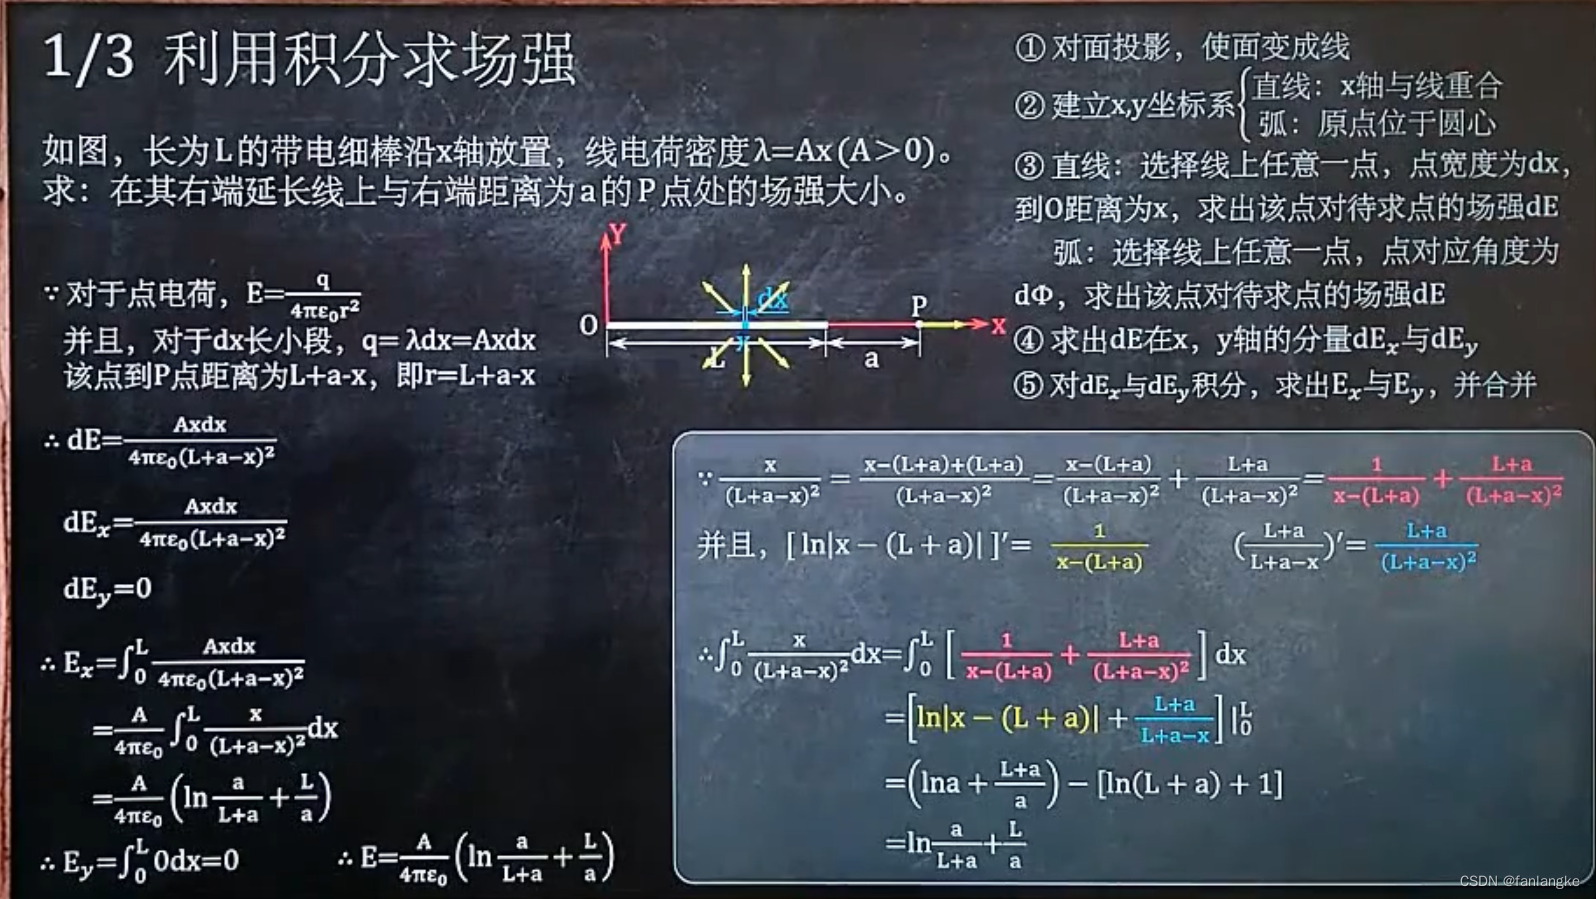 1/3 利用积分求场强
如图，长为L的带电细棒沿x轴放置，线电荷密度λ=Ax(A＞0)。
求：在其右端延长线上与右端距离为a的P点处的场强大小。
∵ 对于点电荷，E=q/4πε₀r²
并且，对于dx长小段，q= λdx=Axdx
该点到P点距离为L+a-x，即r=L+a-x
∴ dE=Axdx/4πε₀(L+a−x)²
dEₓ=Axdx/4πε₀(L+a−x)²
dE_y=0
∴ Eₓ=∫₀ᴸ Axdx/4πε₀(L+a−x)²
=A/4πε₀ ∫₀ᴸ x/(L+a−x)² dx
=A/4πε₀ (ln a/L+a + L/a)
∴ E_y=∫₀ᴸ 0dx=0
∴ E=A/4πε₀ (ln a/L+a + L/a)
Y
dx
O
P
x
L
a
① 对面投影，使面变成线
② 建立x,y坐标系{直线：x轴与线重合
弧：原点位于圆心
③ 直线：选择线上任意一点，点宽度为dx，
到O距离为x，求出该点对待求点的场强dE
弧：选择线上任意一点，点对应角度为
dΦ，求出该点对待求点的场强dE
④ 求出dE在x，y轴的分量dEₓ与dE_y
⑤ 对dEₓ与dE_y积分，求出Eₓ与E_y，并合并
∵ x/(L+a−x)² = x−(L+a)+(L+a)/(L+a−x)² = x−(L+a)/(L+a−x)² + L+a/(L+a−x)² = 1/x−(L+a) + L+a/(L+a−x)²
并且，[ ln|x − (L + a)| ]′= 1/x−(L+a) (L+a/L+a−x)′= L+a/(L+a−x)²
∴∫₀ᴸ x/(L+a−x)² dx=∫₀ᴸ [ 1/x−(L+a) + L+a/(L+a−x)² ] dx
=[ln|x − (L + a)| + L+a/L+a−x] |₀ᴸ
=(lna + L+a/a) − [ln(L + a) + 1]
=ln a/L+a + L/a
CSDN @fanlangke